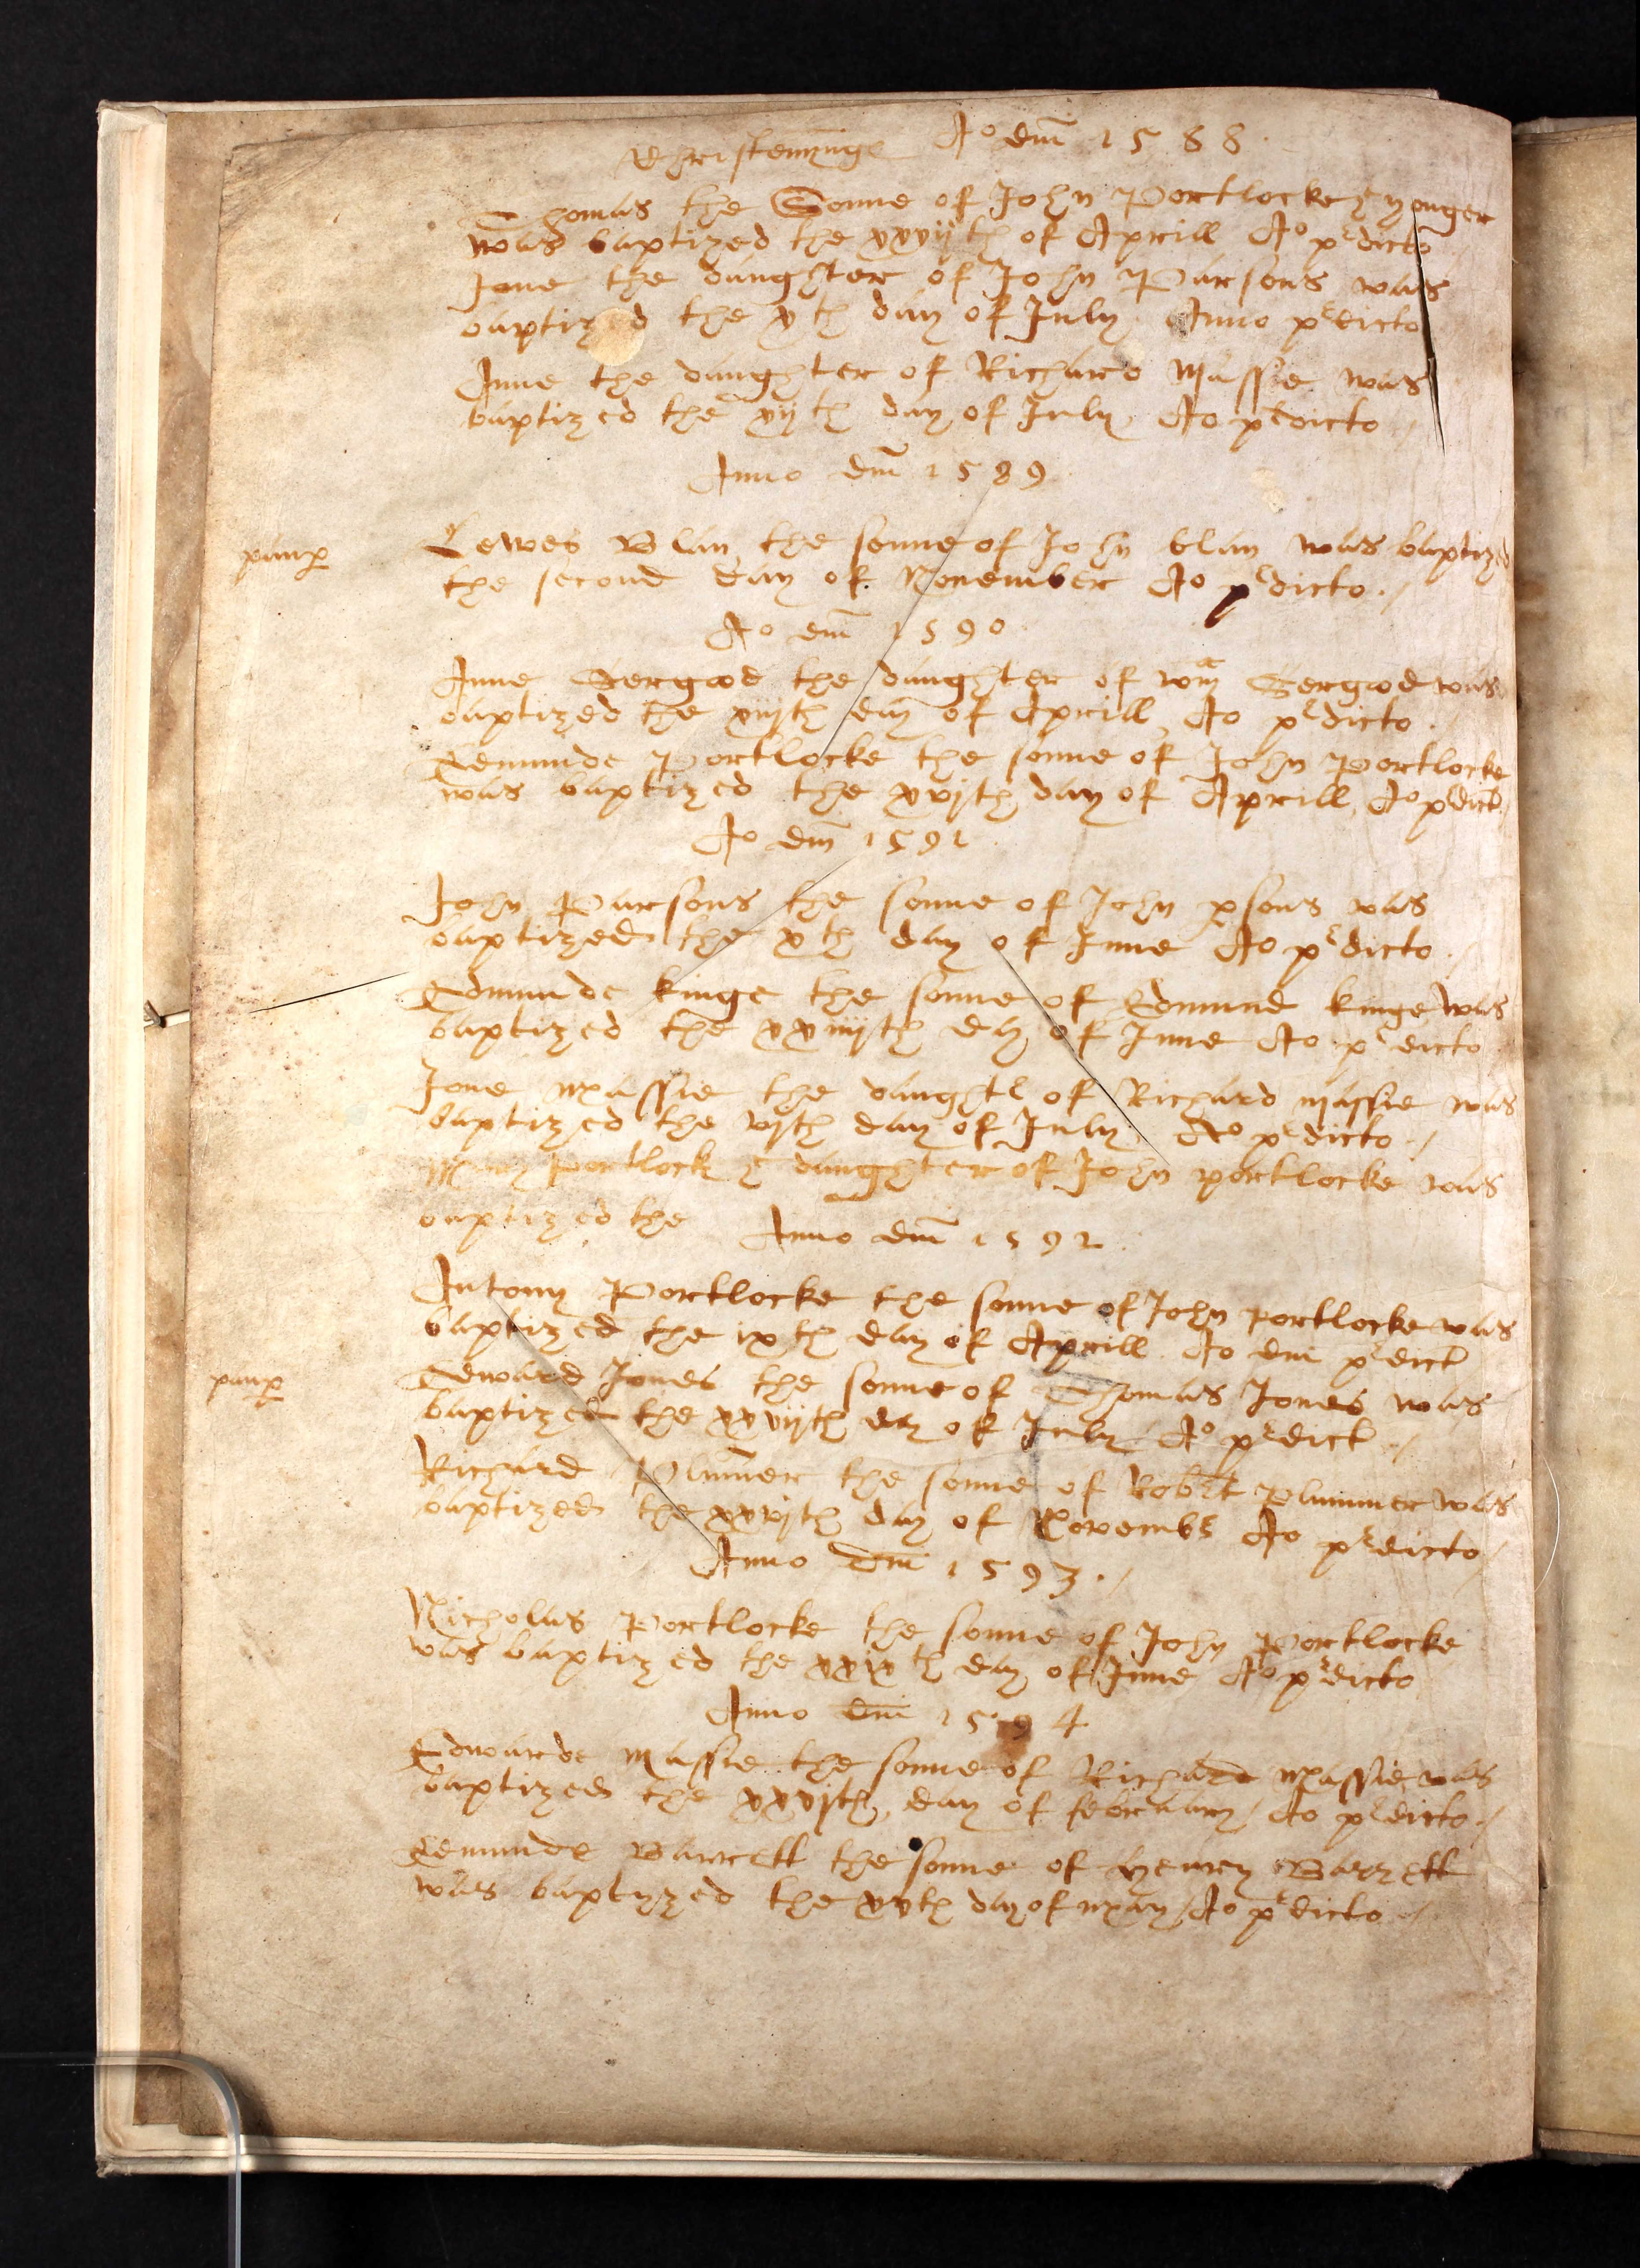 Christeninge Ao dm̄ 1588.
Thomas the Sonne of John Portlocke ye yonger
was baptized the xxvijth of Aprill Ao prdicto
Jone the daughter of John Parsons was
baptized the xth day of July. Anno prdicto
Anne the daughter of Richard Massie was
baptized the xijth day of July Ao prdicto /
Anno dm̄ 1589
paup
Lewes Blan the sonne of John blan was baptized
the second day of November Ao prdicto . /
Ao dm̄ 1590
Anne the daughter of wm̄ was
baptized the xiijth day of Aprill, Ao prdicto .
Edmunde Portlocke the sonne of John Portlocke
was baptized the xvjth day of Aprill, Ao prdict.
Ao dm̄ 1591
John Parsons the sonne of John psons was
baptized the xth day of June Ao prdicto . /
Edmunde kinge the sonne of Edmund kinge was
baptized the xxiiijth day of June Ao prdicto
Jone Massie the daughtr of Richard Massie was
baptized the vjth day of July, Ao prdicto . /
Mary Portlock ye daughter of John portlocke was
baptized the
Anno dm̄ 1592
Antony Portlocke the sonne of John Portlocke was
baptized the ixth day of Aprill Ao dm̄ prdict
paup
Edward Jones the sonne of Thomas Jones was
baptized the xxvijth day of July Ao prdict . /
Richard Plum̄er the sonne of Robrt Plummer was
baptized the xxvjth day of Novembr Ao prdicto /
Anno Dm̄ 1593. /
Nicholas Portlocke the sonne of John Portlocke
was baptized the xxixth day of June Ao prdicto
Anno Dm̄ 1594
Edwarde Massie the sonne of Richard Massie was
baptized the xxvjth day of february / Ao prdicto. /
Edmunde Barrett the sonne of Henry Barrett
was baptyzed the xvth day of May / Ao prdicto . /